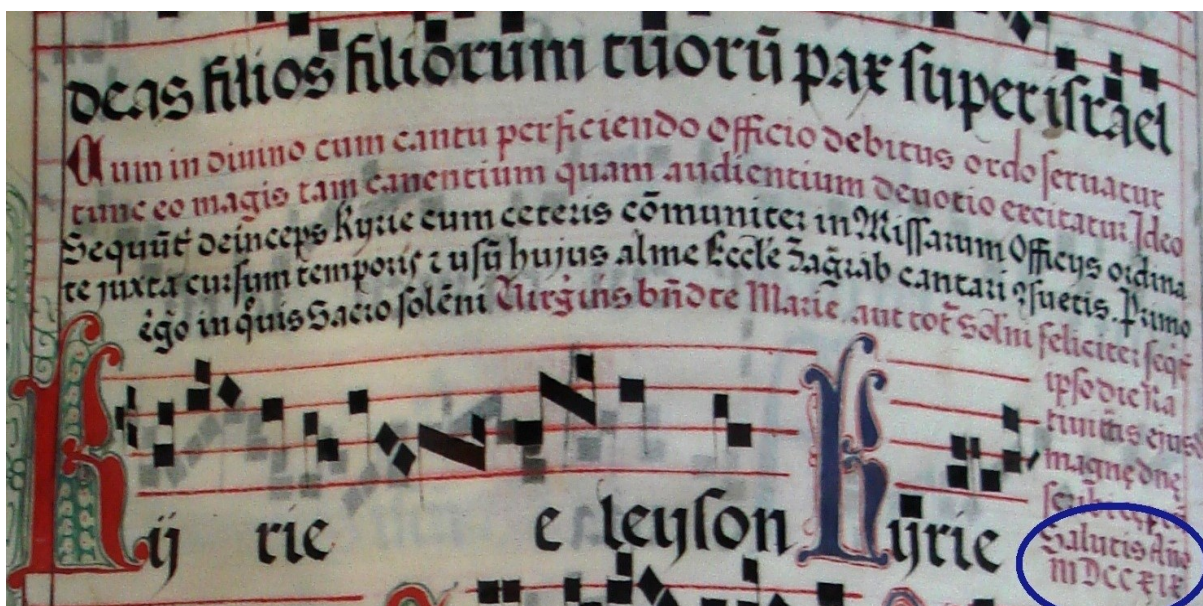 deas filios filiorum tuorū pax super israel
Cum in diuino cum cantu perficiendo Officio debitus ordo seruatur
tunc eo magis tam canentium quam audientium deuotio excitatur Ideo
Sequūt deinceps Kyrie cum ceteris cōmuniter in Missarum Officijs ordina
te juxta cursum temporis ⁊ usū hujus alme Eccłe Zagrab cantari ꝯsuetis. Primo
ego in quis Sacro solēni Virginis bn̄dte Marie, aut tot Solni feliciter seqt
ipso die Na
tiuitis ejusd
magnę dnę
Kÿ rie e leyson Kÿrie
Salutis Año
MDCCXIX